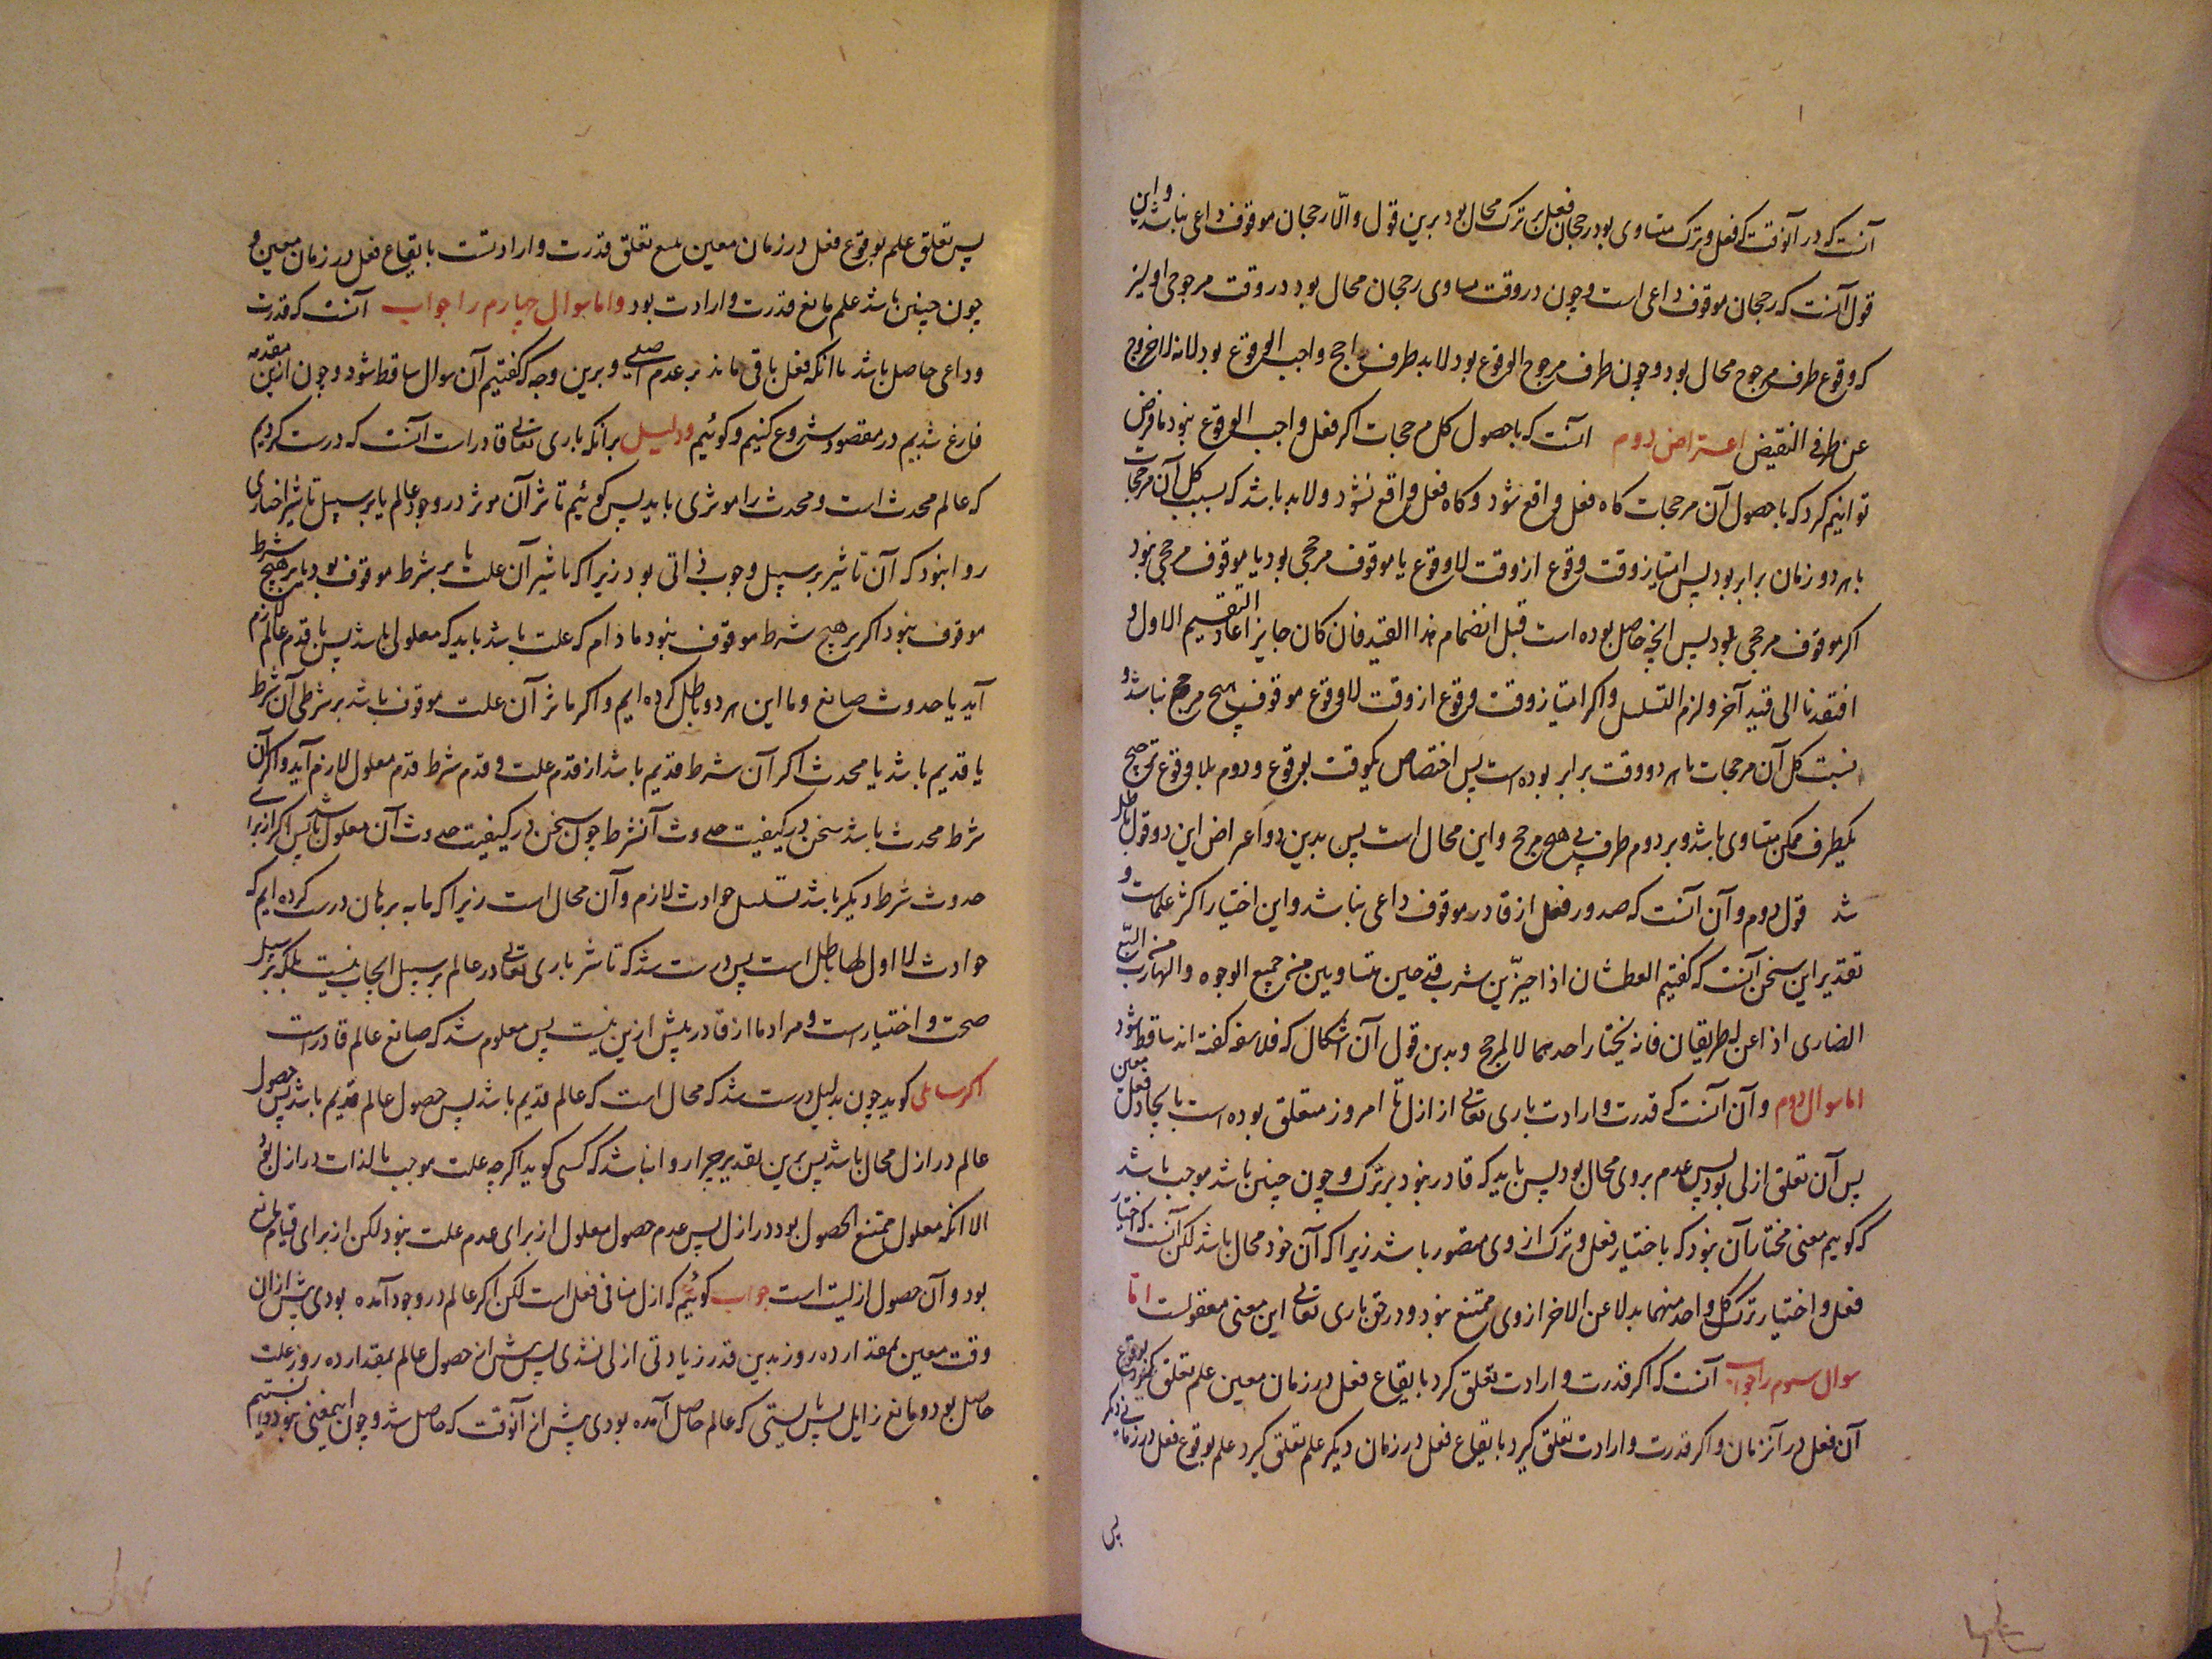 آنست که در آنوقت که فعل و ترک متساوی بود رجحان فعل بر ترک محال بود برین قول و الّا رجحان موقوف داعی نباشد و این
قول آنست که رجحان موقوف داعی است و چون در وقت تساوی رجحان محال بود در وقت مرجوحی اولیتر
که وقوع طرف مرجوح محال بود و چون طرف مرجوح الوقوع بود لابد طرف راجح واجب الوقوع بود لانه لا خروج
عن طرفی النقیض اعتراض دوم آنست که با حصول کل مرجحات اکر فعل واجب الوقوع نبود ما فرض
توانیم کرد که با حصول آن مرجحات کاه فعل واقع شود و کاه فعل واقع نشود و لابد باشد که نسبت کل آن مرجحات
با هر دو زمان برابر بود پس امتیاز وقت وقوع از وقت لا وقوع یا موقوف مرجحی بود یا موقوف مرجحی نبود
اکر موقوف مرجحی بود پس آنچه حاصل بوده است قبل انضمام هذا القید فان کان جایز اعاد التقسیم الاول و
افتقرنا الی قید آخر و لزم التسلسل و اکر امتیاز وقت وقوع از وقت لا وقوع موقوف هیچ مرجح نباشد و
نسبت کل آن مرجحات با هر دو وقت برابر بوده است پس اختصاص یکوقت بوقوع و دوم بلا وقوع ترجیح
یکطرف ممکن متساوی باشد و بر دوم طرف بی هیچ مرجح و این محال است پس بدین دو اعتراض این دو قول باطل
شد قول دوم و آن آنست که صدور فعل از قادر موقوف داعی نباشد و این اختیار اکثر علماست و
تقدیر این سخن آنست که کفتیم العطشان اذا خیّر بین شرب قدحین متساویین من جمیع الوجوه و الهارب من السّبع
الضاری اذا عن له طریقان فانه یختار احدهما لا لمرجح و بدین قول آن اشکال که فلاسفه کفته اند ساقط شود
اما سوال دوم و آن آنست که قدرت و ارادت باری تعالی از ازل تا امروز متعلق بوده است بایجاد فعل معین
پس آن تعلق ازلی بود پس عدم بروی محال بود پس باید که قادر نبود بر ترک و چون چنین باشد موجب باشد
که کوییم معنی مختار آن نبود که باختیار فعل و ترک از وی متصور باشد زیرا که آن خود محال باشد لکن آنست که اختیار
فعل و اختیار ترک کل واحد منهما بدلا عن الاخر از وی ممتنع نبود و در حق باری تعالی این معنی معقولست اما
سوال سوم را جواب آنست که اکر قدرت و ارادت تعلق کرد بایقاع فعل در زمان معین علم تعلق بوقوع
آن فعل در آنزمان و اکر قدرت و ارادت تعلق کیرد بایقاع فعل در زمان دیکر علم تعلق کیرد علم بوقوع فعل در زمانی دیکر
پس
پس تعلق علم بوقوع فعل در زمان معین تبع تعلق قدرت و ارادتست بایقاع فعل در زمان معین و
چون چنین باشد علم مانع قدرت و ارادت بود و اما سوال چهارم را جواب آنست که قدرت
و داعی حاصل باشد با آنکه فعل باقی ماند بر عدم اصلی و برین وجه که کفتیم آن سوال ساقط شود و چون ازین مقدمه
فارغ شدیم در مقصود شروع کنیم و کوئیم دلیل بر آنکه باری تعالی قادر است آنست که درست کردیم
که عالم محدث است و محدث را موثری باید پس کوئیم تاثر آن موثر در وجود عالم یا بر سبیل تاثیر اختیاری
روا نبود که آن تاثیر بر سبیل وجوب ذاتی بود زیرا که تاثیر آن علت یا بر شرط موقوف بود یا بر هیچ شرط
موقوف نبود اکر بر هیچ شرط موقوف نبود مادام که علت باشد باید که معلول باشد پس یا قدم عالم لازم
آید یا حدوث صانع و ما این هر دو باطل کرده ایم و اکر تاثر آن علت موقوف باشد بر شرطی آن شرط
یا قدیم باشد یا محدث اکر آن شرط قدیم باشد از قدم علت و قدم شرط قدم معلول لازم آید و اکر آن
شرط محدث باشد سخن در کیفیت حدوث آنشرط چون سخن در کیفیت حدوث آن معلول باشد پس اکر از برای
حدوث شرط دیکر باشد تسلسل حوادث لازم و آن محال است زیرا که ما به برهان درست کرده ایم که
حوادث لا اول لها باطل است پس درست شد که تاثر باری تعالی در عالم بر سبیل ایجاب نیست بلکه بر سبیل
صحت و اختیار است و مراد ما از قادر بیش ازین نیست پس معلوم شد که صانع عالم قادر است
اکر سایلی کوید چون بدلیل درست شد که محال است که عالم قدیم باشد پس حصول عالم قدیم باشد پس حصول
عالم در ازل محال باشد پس برین تقدیر چرا روا نباشد که کسی کوید اکرچه علت موجب بالذات در ازل بود
الا آنکه معلول ممتنع الحصول بود در ازل پس عدم حصول معلول از برای عدم علت نبود لکن از برای قیام مانع
بود و آن حصول ازلیت است جواب کوئیم که ازل منافی فعل است لکن اکر عالم در وجود آمده بودی پیش از آن
وقت معین بمقدار ده روز بدین قدر زیادتی ازلی نشدی پس پیش از حصول عالم بمقدار ده روز علت
حاصل بود و مانع زایل پس بایستی که عالم حاصل آمده بودی پیش از آنوقت که حاصل شد و چون اینمعنی نبود دانستیم